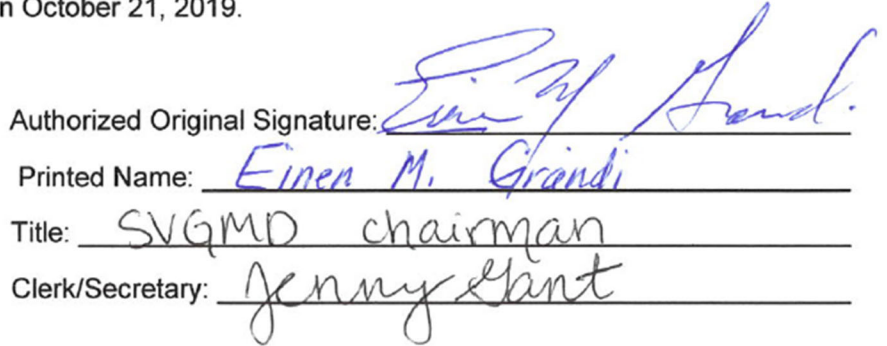 n October 21, 2019.
Authorized Original Signature: Einen M Grandi
Printed Name: Einen M. Grandi
Title: SVGMD chairman
Clerk/Secretary: Jenny Gant